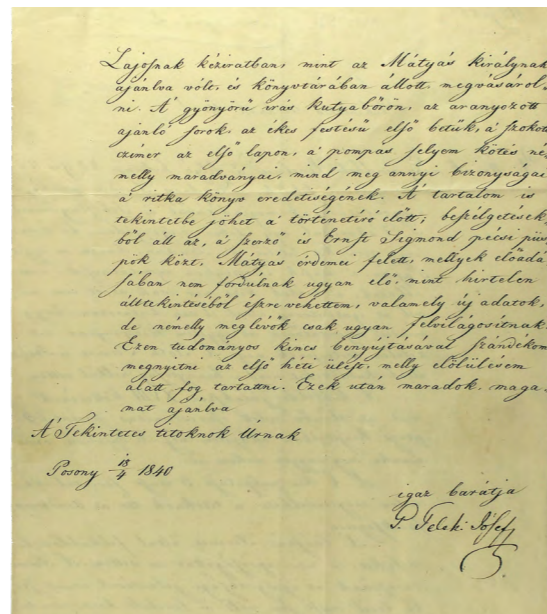 Lajosnak kéziratban, mint az Mátyás királynak
ajánlva vólt, és könyvtárában állott, megvásárol-
ni. A' gyönyörű irás kutyabőrön, az aranyozott
ajánló sorok, az ékes festésű első betűk, a' szokott
tzímer az első lapon, a' pompás selyem kötés né-
melly maradványai, mind meg annyi bizonyságai
a' ritka könyv eredetiségének. A' tartalom is
tekintetbe jöhet a' történetíró előtt; beszélgetések-
ből áll az, a' szerző és Ernst Sigmond pécsi püs-
pök közt, Mátyás érdemei felett, mellyek előadá-
sában nem fordúlnak ugyan elő, mint hirtelen
áttekintéséből észre vehettem, valamely új adatok,
de némelly meglévők csak ugyan felvilágosítnak.
Ezen tudományos kincs benyújtásával szándékom
megnyitni az első heti ülést, melly előlülésem
alatt fog tartattni. Ezek után maradok, maga-
mat ajánlva
A' Tekintetes titoknok Úrnak
Posony 18/4 1840
igaz barátja
G. Teleki Jósef